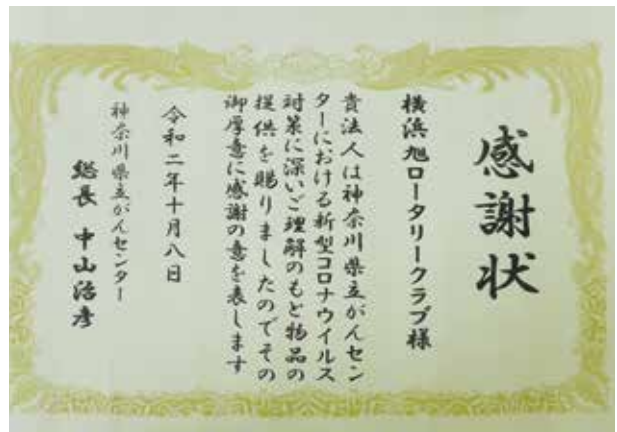 感謝状
横浜旭ロータリークラブ様
貴法人は神奈川県立がんセン
ターにおける新型コロナウイルス
対策に深いご理解のもと物品の
提供を賜りましたのでその
御厚意に感謝の意を表します
令和二年十月八日
神奈川県立がんセンター
総長 中山治彦